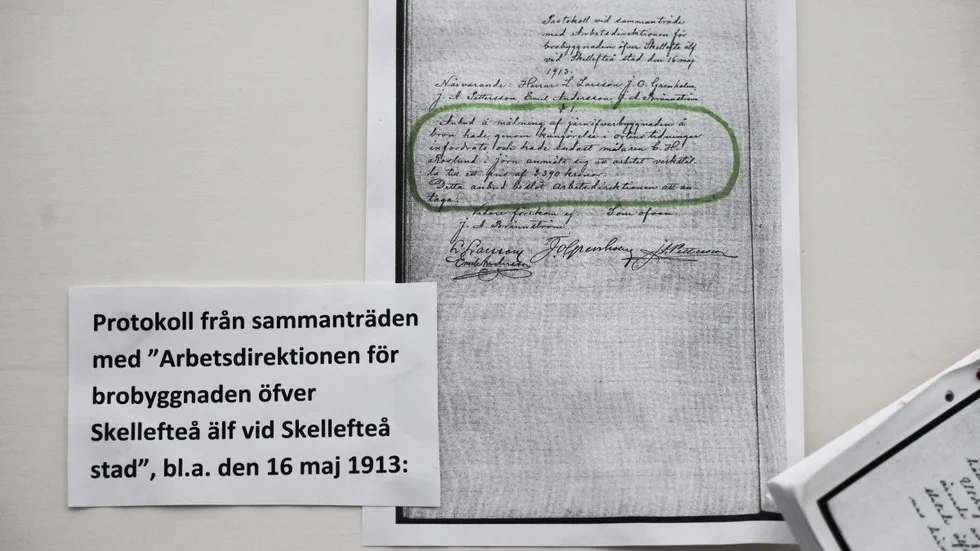 Protokoll vid sammanträde
med Arbetsdirektionen för
brobyggnaden öfver Skellefte älf
vid Skellefteå stad den 16 maj
1913.
Närvarande: Herrar L. Larsson, J. O. Grenholm,
J. A. Pettersson, Emil Andersson, J. A. Brännström
§ 1.
Anbud å målning af järnöfverbyggnaden å
bron hade genom kungörelse i ortens tidningar
infordrats och hade endast målaren C. H.
Roslund i Jörn anmält sig att arbetet verkstäl-
la till ett pris af 2390 kronor.
Detta anbud beslöt Arbetsdirektionen att an-
taga.
Vidare förekom ej. Som ofvan
J. A. Brännström
L. Larsson J. O. Grenholm J. A. Pettersson
Emil Andersson
Protokoll från sammanträden
med ”Arbetsdirektionen för
brobyggnaden öfver
Skellefteå älf vid Skellefteå
stad”, bl.a. den 16 maj 1913: